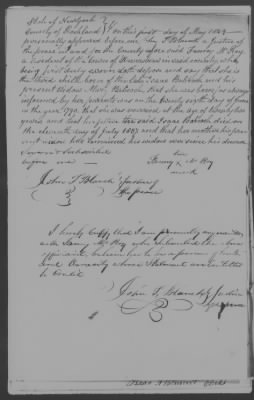 State of New York
County of Rockland } On this first day of May 1849
personally appeared before me John F Blauch a Justice of
the peace in and for the County aforesaid Fanny McKoy
a resident of the town of Haverstraw in said county who
being first duly sworn doth depose and say that she is
the third child born of the late Isaac Babcock and his
present widow Mary Babcock, that she was born, as always
informed by her parents on the twenty ninth day of June
in the year 1790. that she was married at the age of twenty
years and that her father the said Isaac Babcock died on
the eleventh day of July 1807 and that her mother his pres
ent widow has remained his widow ever since his decease
Sworn & Subscribed her
before me Fanny x McKoy
mark
John F Blauch Justice
of the peace
I hereby Certify that I am personally acquainted
with Fanny McKoy who subscribed the above
affidavit, believe her to be a person of truth
and veracity whose statements are entitled
to Credit
John F Blauch Justice
of the peace
Isaac